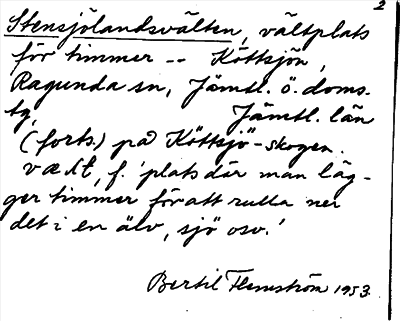 2
Stensjölandsvälten, vältplats
för timmer -- Köttsjön,
Ragunda sn, Jämtl. ö. doms.
tg, Jämtl. län
(forts.) på Köttsjö-skogen.
væLt, f. 'plats där man läg-
ger timmer för att rulla ner
det i en älv, sjö osv.'
Bertil Flemström 1953.